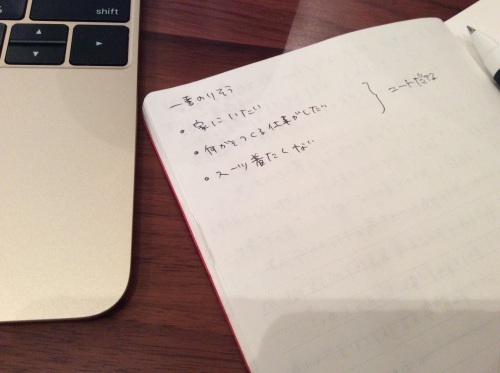 shift
一番のりそう
• 家にいたい
• 何かをつくる仕事がしたい
• スーツ着たくない
ニートだな